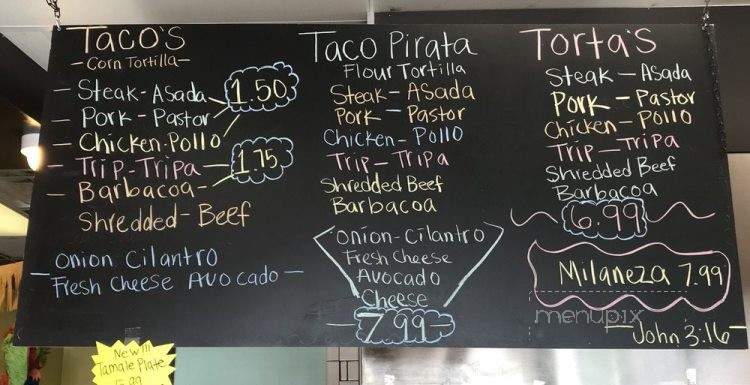 Taco's
- Corn Tortilla -
- Steak - Asada
- Pork - Pastor
- Chicken - Pollo
1.50
- Trip - Tripa
- Barbacoa -
1.75
Shredded - Beef
- Onion Cilantro
Fresh Cheese Avocado -
Taco Pirata
Flour Tortilla
Steak - Asada
Pork - Pastor
Chicken - Pollo
Trip - Tripa
Shredded Beef
Barbacoa
Onion - Cilantro
Fresh Cheese
Avocado
Cheese
- 7.99 -
Torta's
Steak - Asada
Pork - Pastor
Chicken - Pollo
Trip - Tripa
Shredded Beef
Barbacoa
6.99
Milaneza 7.99
menupix
- John 3:16 -
New!!!
Tamale Plate